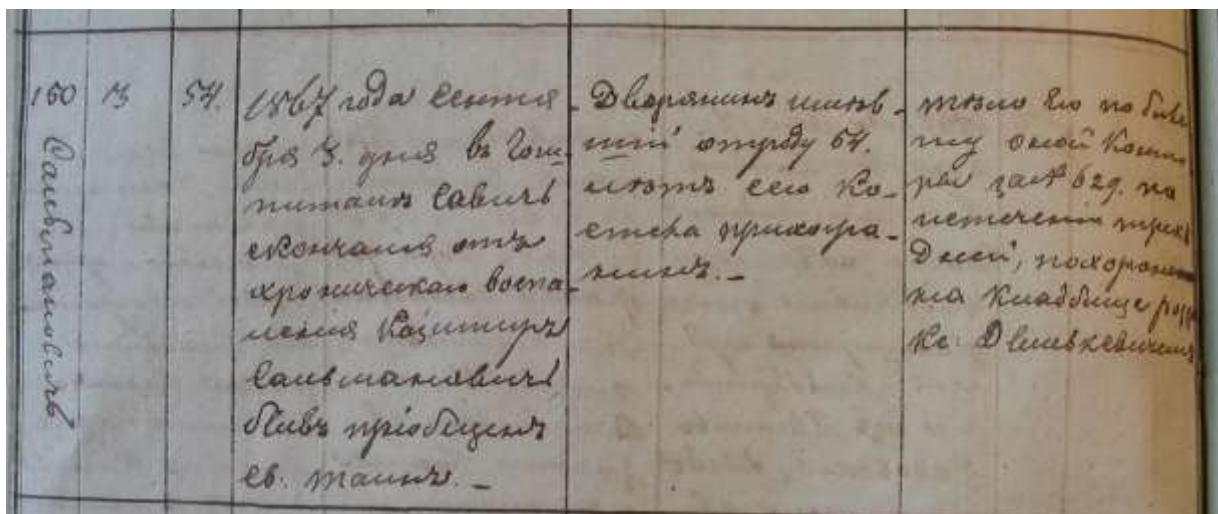 150
Сальмановичъ
3
54.
1867 года Сентя
бря 3. дня въ Гош-
питалѣ Савичь
скончался отъ
хроническаго воспа-
ленія Казимиръ
Сальмановичъ
бывъ пріобщенъ
св. таинъ. –
Дворянинъ имѣв-
шій отроду 54.
лѣтъ сего Ко-
стела прихожа-
нинъ. –
тѣло Его по
оной
за № 629. по
истеченіи трехъ
Дней, похоронено
на Кладбище
Кс.